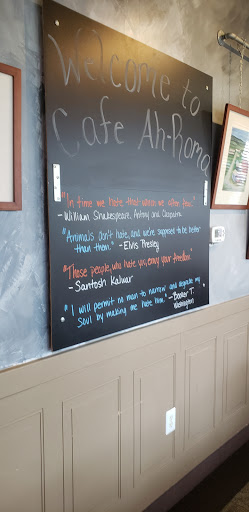 Welcome to
Cafe Ah-Roma
"In time we hate that which we often fear."
- William Shakespeare, Antony and Cleopatra
"Animals don't hate, and we're supposed to be better
than them." - Elvis Presley
"Those people, who hate you, envy your freedom."
- Santosh Kalwar
"I will permit no man to narrow and degrade my
soul by making me hate him." - Booker T.
Washington